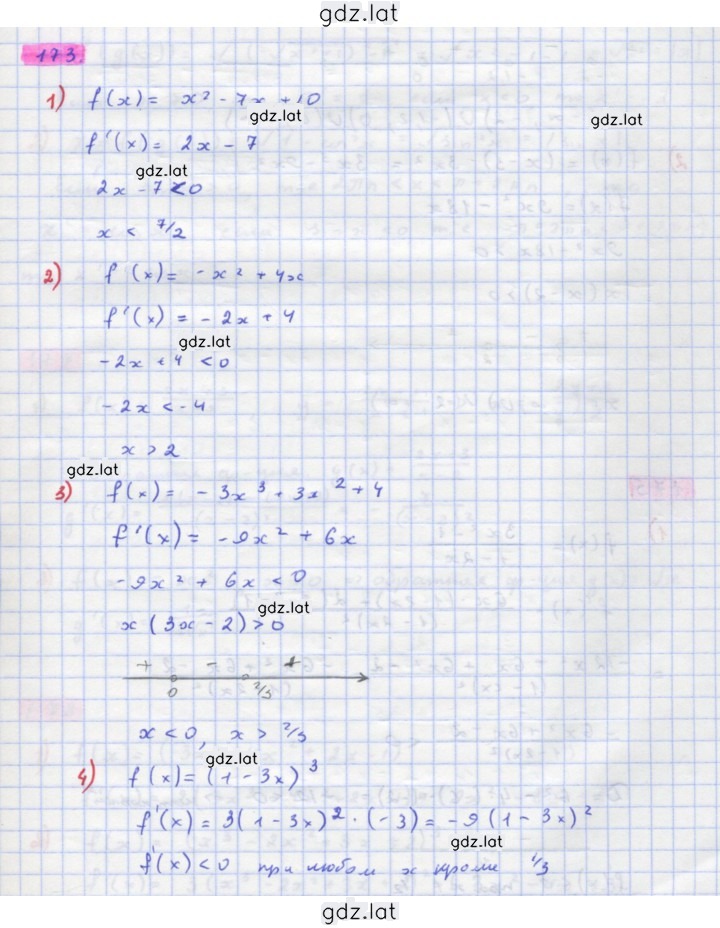 gdz.lat
173.
1) f(x) = x² - 7x + 10
gdz.lat
gdz.lat
f'(x) = 2x - 7
gdz.lat
2x - 7 < 0
x < 7/2
2) f(x) = -x² + 4x
f'(x) = -2x + 4
gdz.lat
-2x + 4 < 0
-2x < -4
x > 2
gdz.lat
3) f(x) = -3x³ + 3x² + 4
f'(x) = -9x² + 6x
-9x² + 6x < 0
gdz.lat
x(3x - 2) > 0
+ - +
0 2/3
x < 0, x > 2/3
gdz.lat
4) f(x) = (1 - 3x)³
f'(x) = 3(1 - 3x)² · (-3) = -9(1 - 3x)²
gdz.lat
f'(x) < 0 при любом x кроме 1/3
gdz.lat